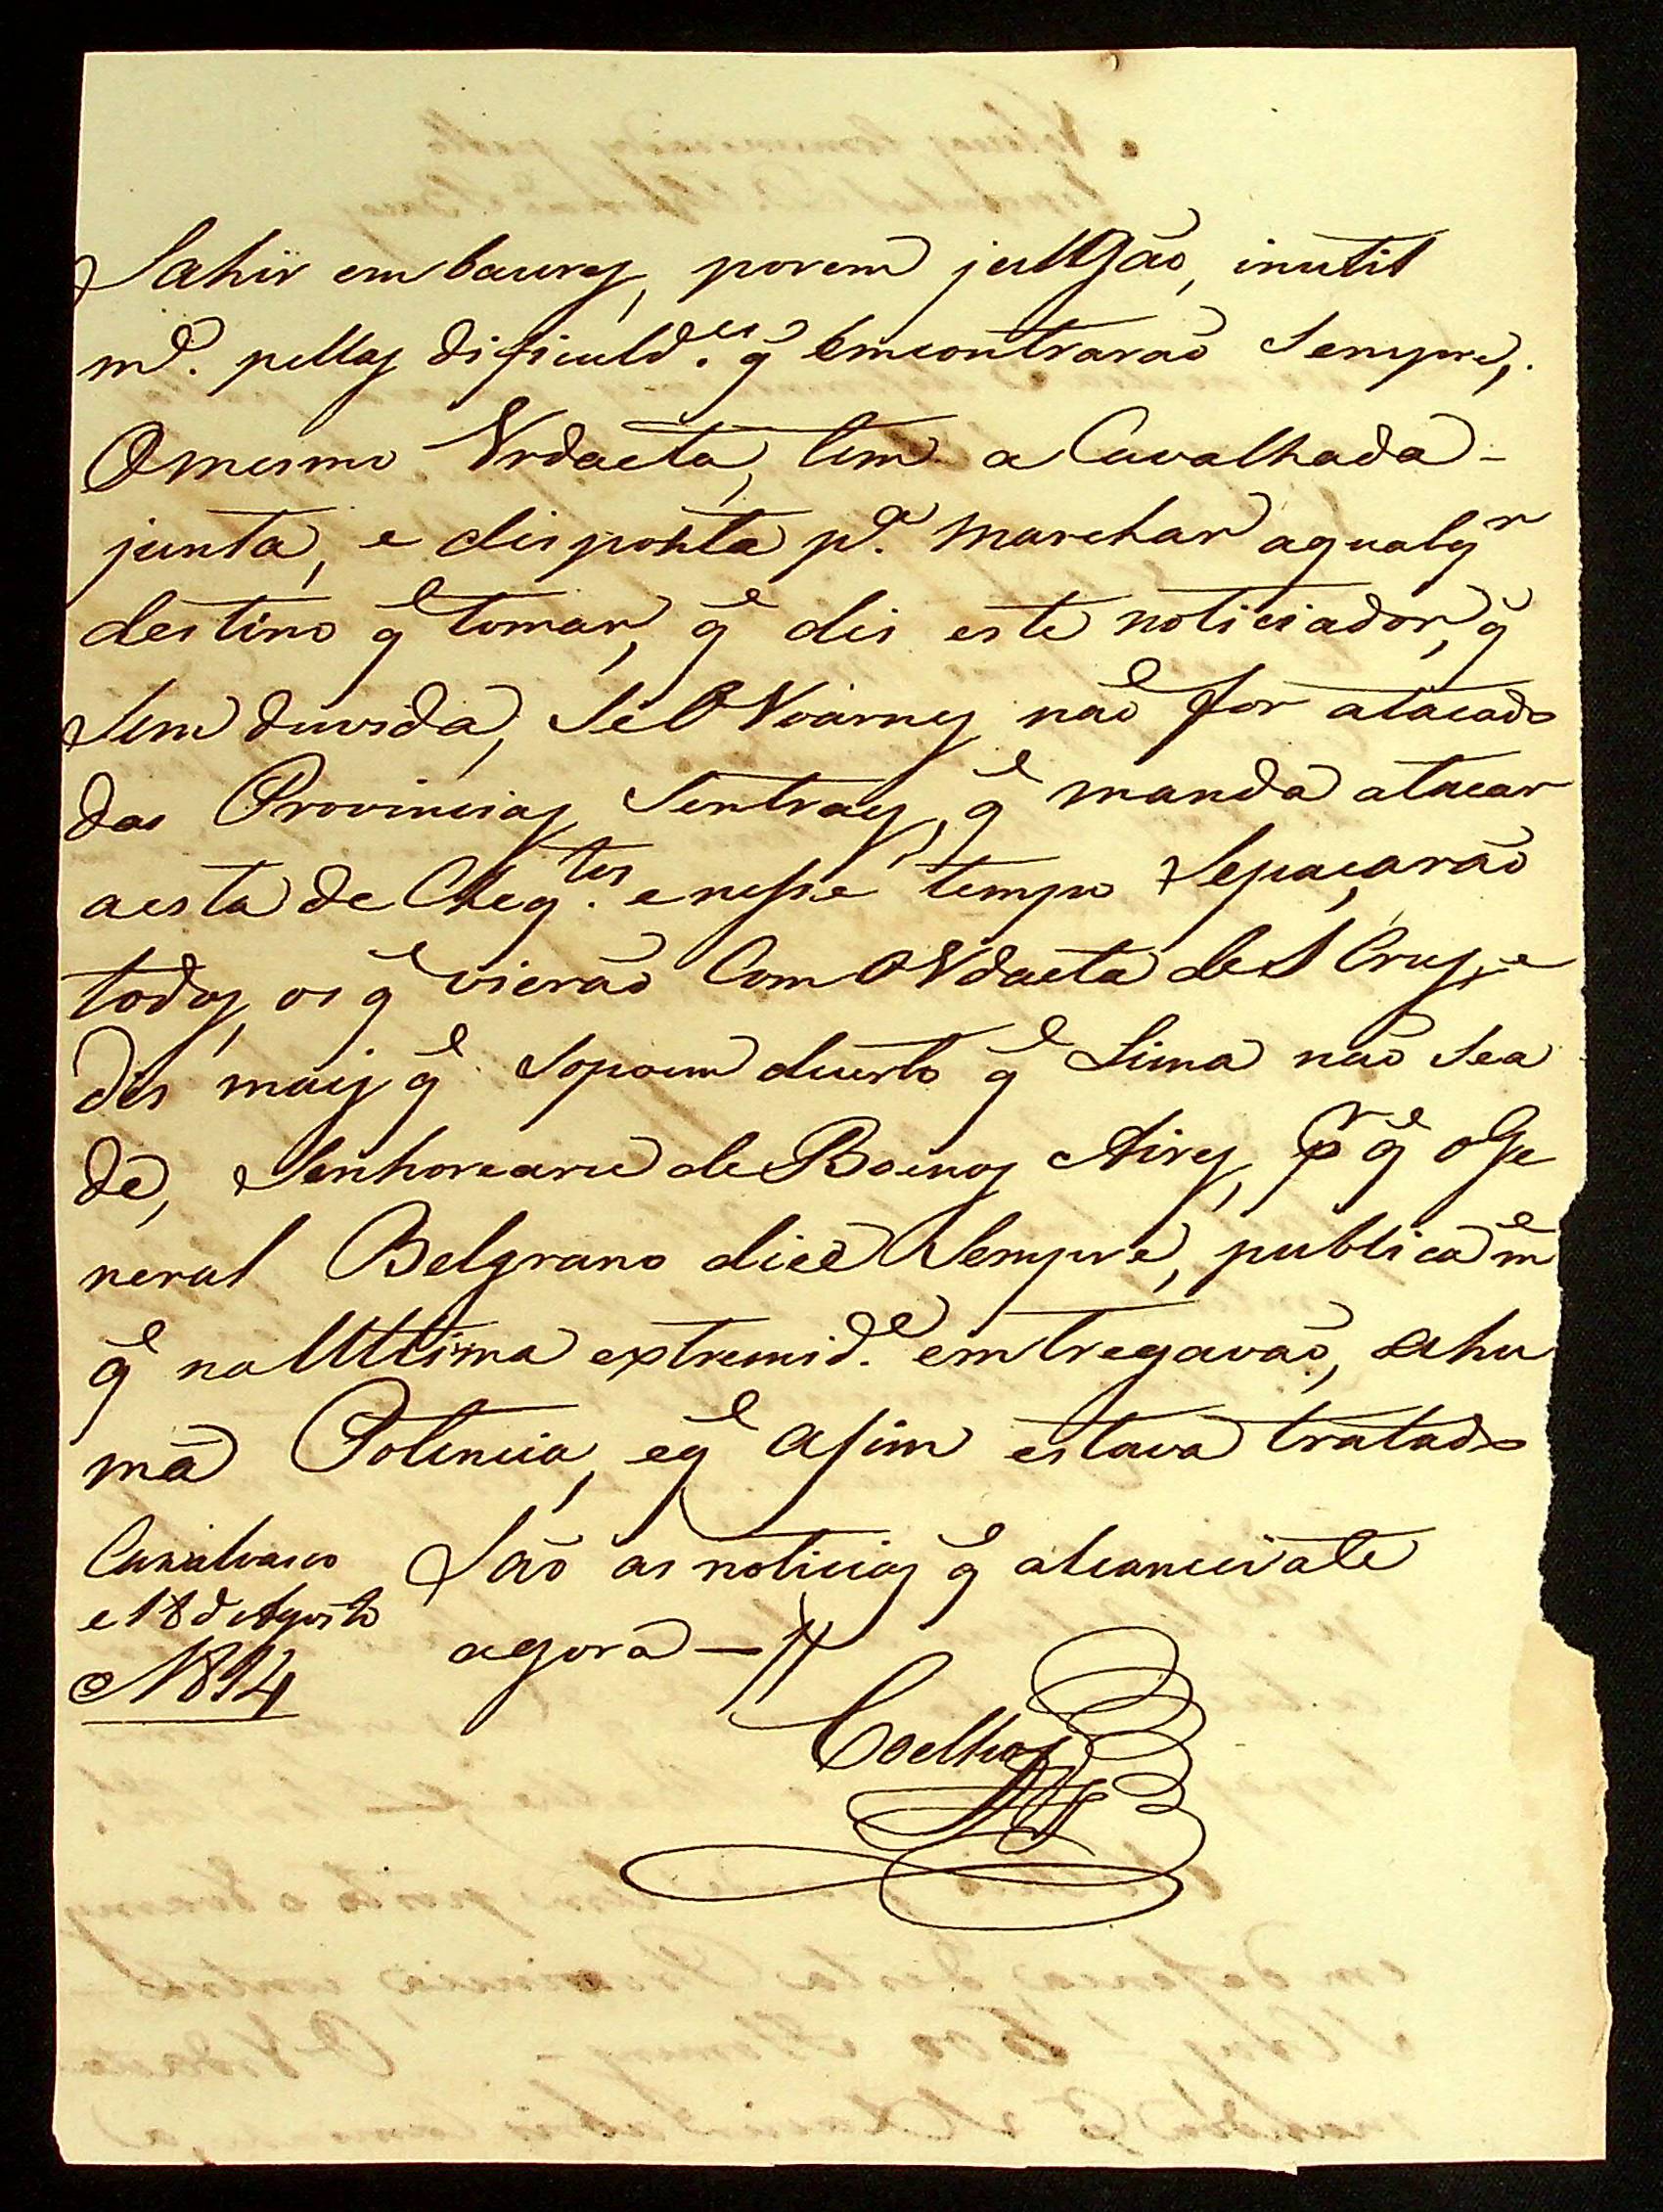 Sahir em baures, porem julgão, inutil
m.to pellas dificuld.es q̃ Emcontrarão Sempre,.
O mesmo Urdaeta, tem a Cavalhada -
junta, e disposta p.a marchar a qualqr
destino q̃ tomar, q̃ dis este noticiador, q̃
Sem duvida, Se O Warnes não for atacado
das Provincias Sentraes, q̃ manda atacar
a esta de Cheq.tos e nesse tempo Se paçarão
todos os q̃ vierão Com O Udaeta de S Crus, e
dis mais q̃ Sopoem Suerto q̃ Lima não Sea
de, Senhoreare de Boenos Aires, pr q̃ o Ge
neral Belgrano dice Sempre, publicamē
q̃ na Ulltima extremid.e emtregavão, a hu
ma Potencia, e q̃ asim estava tratado
São as noticias q̃ alcancei ate
agora —//
Cazalvasco
e 18 d Agosto
1814
Coelho